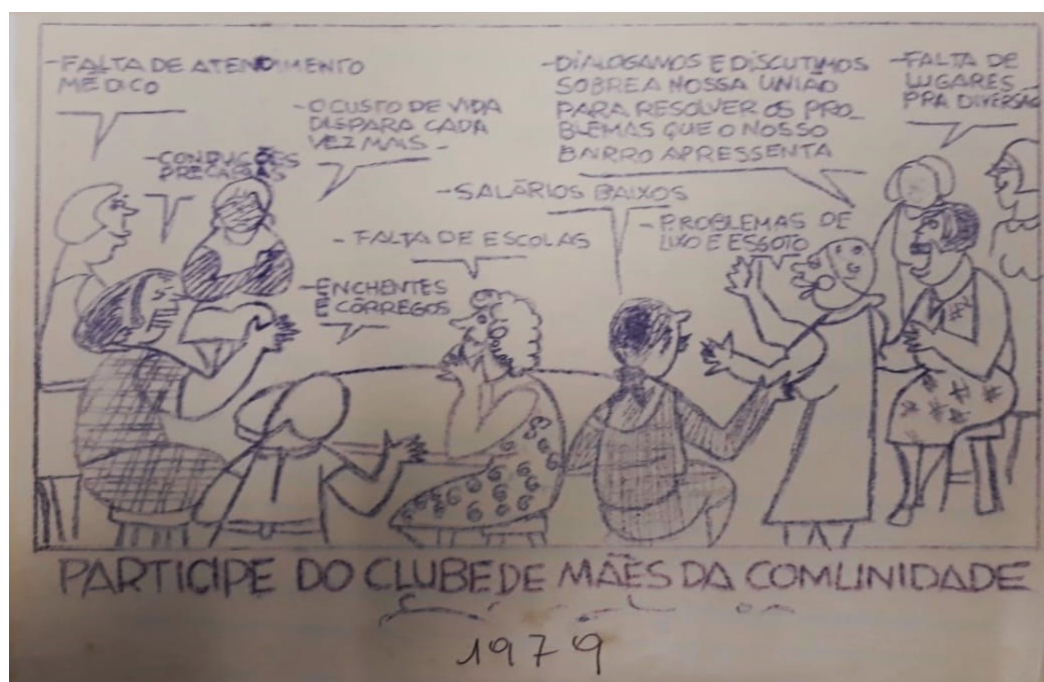 -FALTA DE ATENDIMENTO
MÉDICO
-CONDUÇÕES
PRECÁRIAS
-O CUSTO DE VIDA
DISPARA CADA
VEZ MAIS-
-FALTA DE ESCOLAS
-ENCHENTES
E CÓRREGOS
-SALÁRIOS BAIXOS
-DIALOGAMOS E DISCUTIMOS
SOBRE A NOSSA UNIÃO
PARA RESOLVER OS PRO_
BLEMAS QUE O NOSSO
BAIRRO APRESSENTA
-PROBLEMAS DE
LIXO E ESGOTO
-FALTA DE
LUGARES
PRA DIVERSÃO
PARTICIPE DO CLUBE DE MÃES DA COMUNIDADE
1979